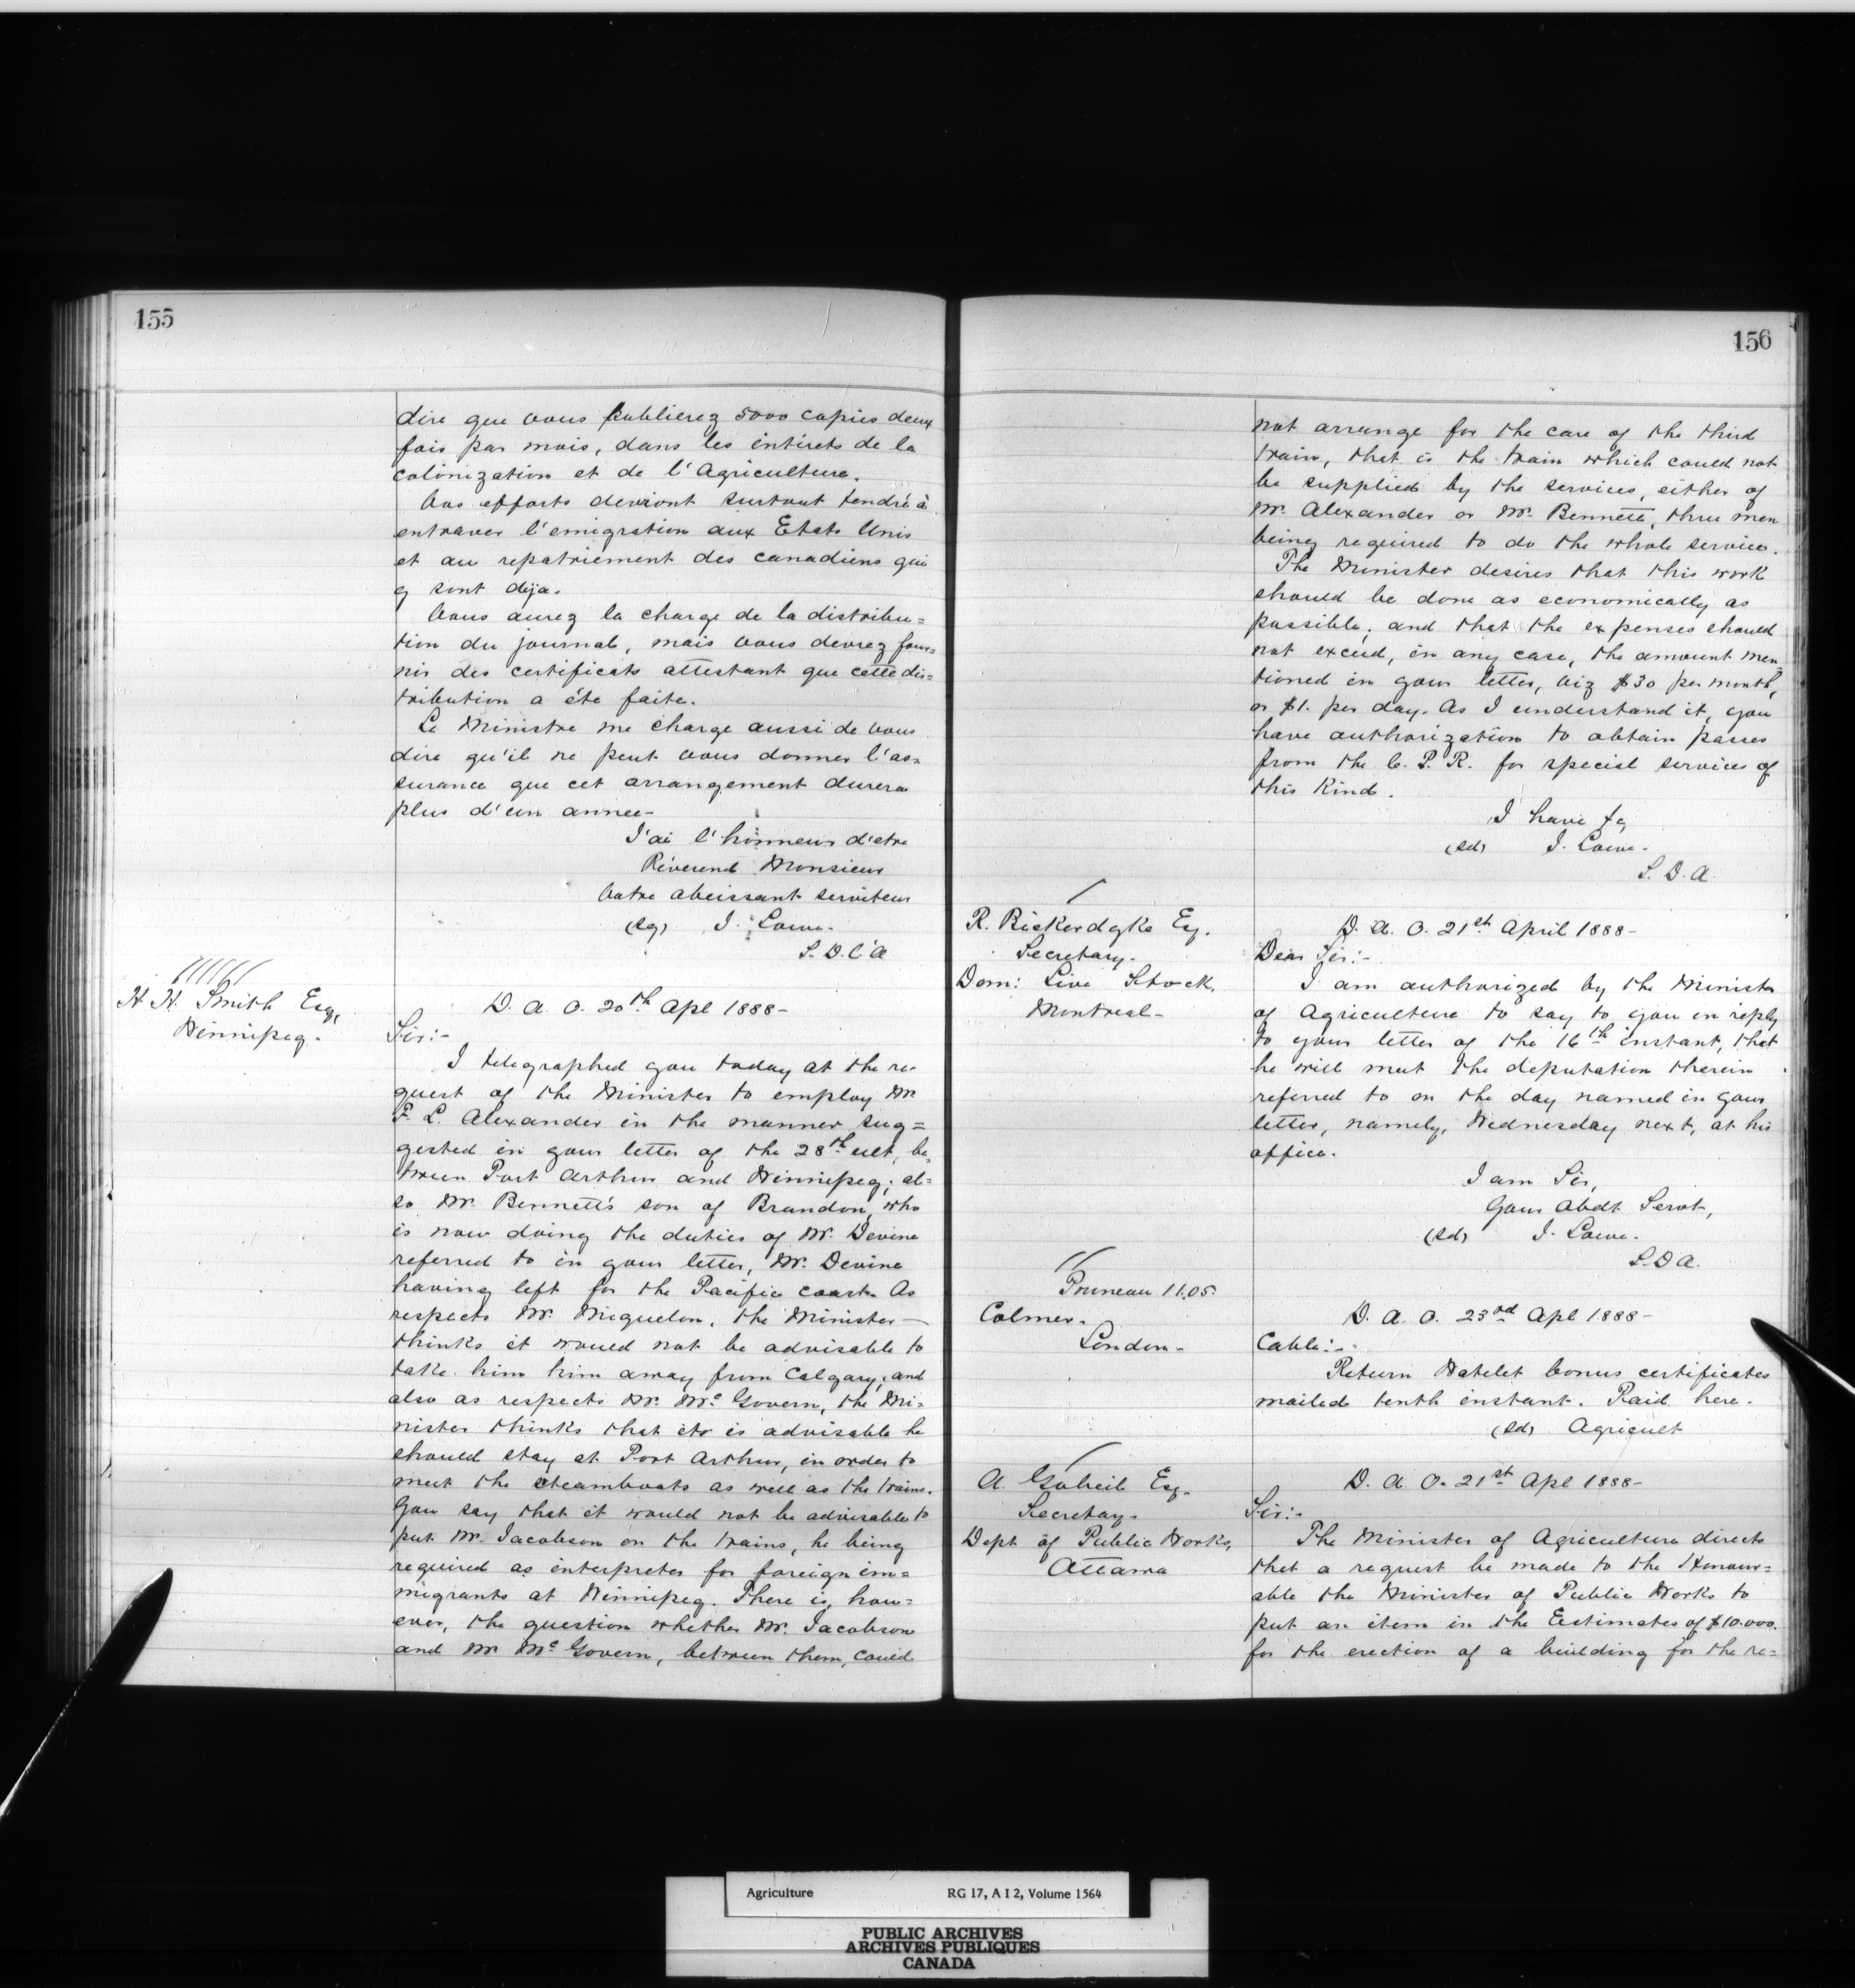 155
dire que vous publierez 5000 copies deux
fois par mois, dans les intérets de la
colonization et de l'Agriculture.
Vos efforts devront surtout tendre à
entraver l'emigration aux Etats Unis
et au repatriement des canadiens qui
y sont déja.
Vous aurez la charge de la distribu=
tion du journal, mais vous devrez four=
nir des certificats attestant que cette dis=
tribution a été faite.
Le Ministre me charge aussi de vous
dire qu'il ne peut vous donner l'as=
surance que cet arrangement durera
plus d'un annee-
J'ai l'honneur d'etre
Révérend Monsieur
Votre obeissant serviteur
(sg) J. Lowe.
S. D. l'A
H. H. Smith Esq,
Winnipeg.
D. A. O. 20th Apl 1888-
Sir:-
I telegraphed you today at the re-
quest of the Minister to employ Mr
F. L. Alexander in the manner sug=
gested in your letter of the 28th ult, be=
tween Port Arthur and Winnipeg; al=
so Mr. Bennett's son of Brandon, who
is now doing the duties of Mr. Devine
referred to in your letter, Mr. Devine
having left for the Pacific coast. As
respects Mr. Miquelon, the Minister
thinks it would not be advisable to
take him him away from Calgary; and
also as respects Mr. McGovern, the Mi=
nister thinks that its is advisable he
should stay at Port Arthur, in order to
meet the steamboats as well as the trains.
You say that it would not be advisable to
put Mr. Jacobson on the trains, he being
required as interpreter for foreign im=
migrants at Winnipeg. There is, how=
ever, the question whether Mr. Jacobson
and Mr McGovern, between them, could
156
not arrange for the care of the third
train, that is the train which could not
be supplied by the services, either of
Mr. Alexander or Mr. Bennett, three men
being required to do the whole service.
The Minister desires that this work
should be done as economically as
possible, and that the expenses should
not exceed, in any case, the amount men=
tioned in your letter, viz $30 per month,
or $1. per day. As I understand it, you
have authorization to obtain passes
from the C. P. R. for special services of
this kind.
I have &c,
(sd) J. Lowe.
S. D. A.
R. Bickerdyke Esq.
Secretary.
Dom: Live Stock,
Montreal-
D. A. O. 21st April 1888-
Dear Sir:-
I am authorized by the Minister
of Agriculture to say to you in reply
to your letter of the 16th instant, that
he will meet the deputation therein
referred to on the day named in your
letter, namely, Wednesday next, at his
office.
I am Sir,
Your Obedt Servt,
(sd) J. Lowe.
S. D A.
Pruneau 11.05.
Colmer.
London-
D. A. O. 23rd Apl 1888-
Cable:-
Return Watelet bonus certificates
mailed tenth instant. Paid here.
(sd) Agricult
A. Gobeil Esq.
Secretay.
Dept of Public Works,
Ottawa
D. A. O. 21st Apl 1888-
Sir:-
The Minister of Agriculture directs
that a request be made to the Honour=
able the Minister of Public Works to
put an item in the Eestimates of $10.000.
for the erection of a building for the re=
Agriculture RG 17, A I 2, Volume 1564
PUBLIC ARCHIVES
ARCHIVES PUBLIQUES
CANADA